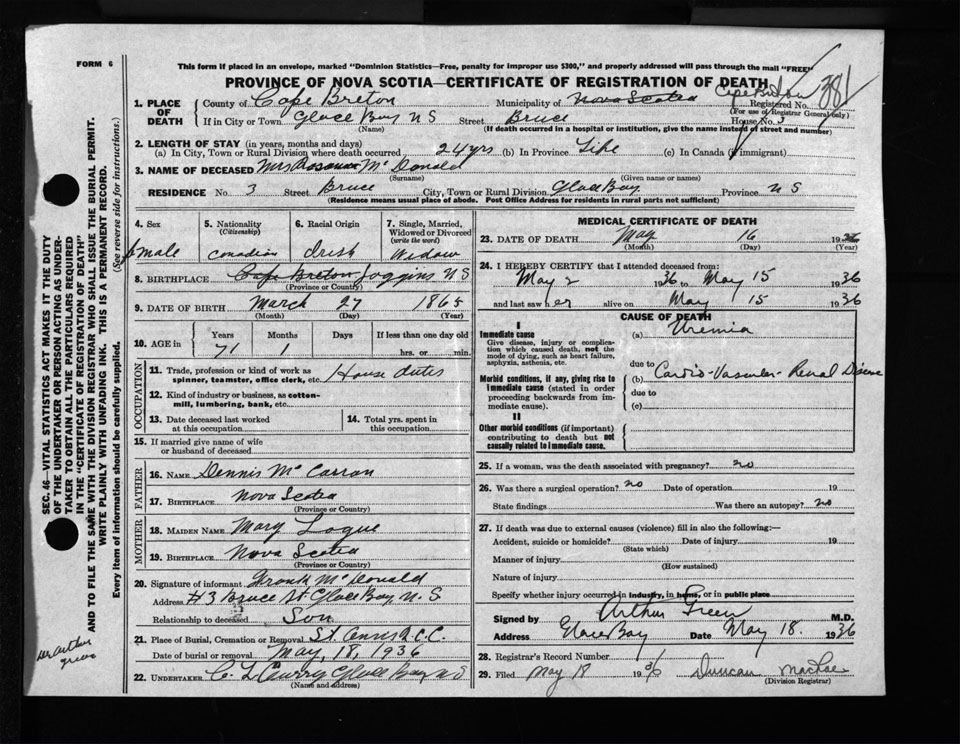 FORM 6
This form if placed in an envelope, marked "Dominion Statistics—Free, penalty for improper use $300," and properly addressed will pass through the mail "FREE"
PROVINCE OF NOVA SCOTIA—CERTIFICATE OF REGISTRATION OF DEATH
Cape Breton 381
1. PLACE OF DEATH
County of Cape Breton Municipality of Nova Scotia Registered No.
(For use of Registrar General only)
If in City or Town Glace Bay N S Street Bruce House No. 3
(Name) (If death occurred in a hospital or institution, give the name instead of street and number)
2. LENGTH OF STAY (in years, months and days)
(a) In City, Town or Rural Division where death occurred 24 yrs (b) In Province Life (c) In Canada (if immigrant)
3. NAME OF DECEASED Mrs McDonald
(Surname) (Given name or names)
RESIDENCE No. 3 Street Bruce City, Town or Rural Division Glace Bay Province N S
(Residence means usual place of abode. Post Office Address for residents in rural parts not sufficient)
4. Sex female
5. Nationality (Citizenship) Canadian
6. Racial Origin Irish
7. Single, Married, Widowed or Divorced (write the word) Widow
8. BIRTHPLACE Cape Breton Joggins N S
(Province or Country)
9. DATE OF BIRTH March 27 1865
(Month) (Day) (Year)
10. AGE in Years Months Days If less than one day old
71 1 hrs. or min.
OCCUPATION
11. Trade, profession or kind of work as spinner, teamster, office clerk, etc. House duties
12. Kind of industry or business, as cotton-mill, lumbering, bank, etc.
13. Date deceased last worked at this occupation
14. Total yrs. spent in this occupation
15. If married give name of wife or husband of deceased
FATHER
16. NAME Dennis McCarron
17. BIRTHPLACE Nova Scotia
(Province or Country)
MOTHER
18. MAIDEN NAME Mary Logue
19. BIRTHPLACE Nova Scotia
(Province or Country)
20. Signature of informant Frank McDonald
Address #3 Bruce St Glace Bay N. S.
Relationship to deceased Son
21. Place of Burial, Cremation or Removal St Anns R.C.C.
Date of burial or removal May, 18, 1936
22. UNDERTAKER Glace Bay N S
(Name and address)
MEDICAL CERTIFICATE OF DEATH
23. DATE OF DEATH May 16 19
(Month) (Day) (Year)
24. I HEREBY CERTIFY that I attended deceased from:
May 2 1936 to May 15 1936
and last saw her alive on May 15 1936
CAUSE OF DEATH
I
Immediate cause
Give disease, injury or complication which caused death, not the mode of dying, such as heart failure, asphyxia, asthenia, etc.
(a) Uremia
due to
Morbid conditions, if any, giving rise to immediate cause (stated in order proceeding backwards from immediate cause).
(b) Cardio-Vascular-Renal Disease
due to
(c)
II
Other morbid conditions (if important) contributing to death but not causally related to immediate cause.
25. If a woman, was the death associated with pregnancy? no
26. Was there a surgical operation? no Date of operation 19
State findings Was there an autopsy? no
27. If death was due to external causes (violence) fill in also the following:—
Accident, suicide or homicide? Date of injury 19
(State which)
Manner of injury
(How sustained)
Nature of injury
Specify whether injury occurred in industry, in home, or in public place
Signed by Arthur Green M.D.
Address Glace Bay Date May 18. 1936
28. Registrar's Record Number
29. Filed May 18 1936 Duncan MacRae
(Division Registrar)
SEC. 46—VITAL STATISTICS ACT MAKES IT THE DUTY
OF THE UNDERTAKER OR PERSON ACTING AS UNDERTAKER TO OBTAIN ALL THE PARTICULARS REQUIRED
IN THE "CERTIFICATE OF REGISTRATION OF DEATH"
AND TO FILE THE SAME WITH THE DIVISION REGISTRAR WHO SHALL ISSUE THE BURIAL PERMIT.
WRITE PLAINLY WITH UNFADING INK. THIS IS A PERMANENT RECORD.
Every item of information should be carefully supplied. (See reverse side for instructions.)
Dr Arthur
Green